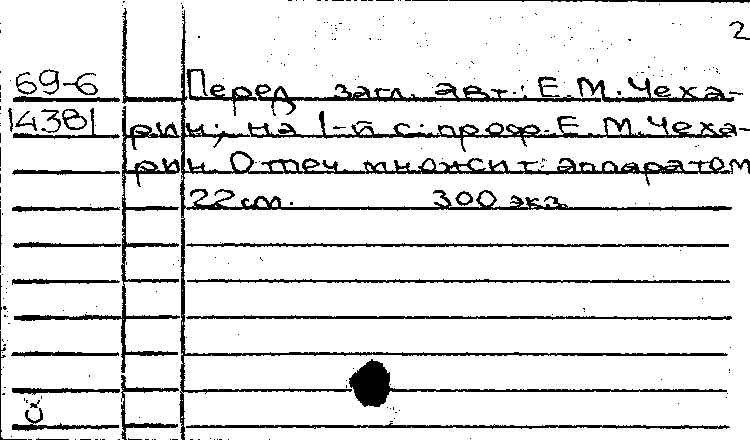 2
69-6 Перед загл. авт.: Е.М.Чеха-
14381 рин; на 1-й с.: проф. Е.М.Чеха-
рин. Отпеч. множит. аппаратом
22 см. 300 экз.